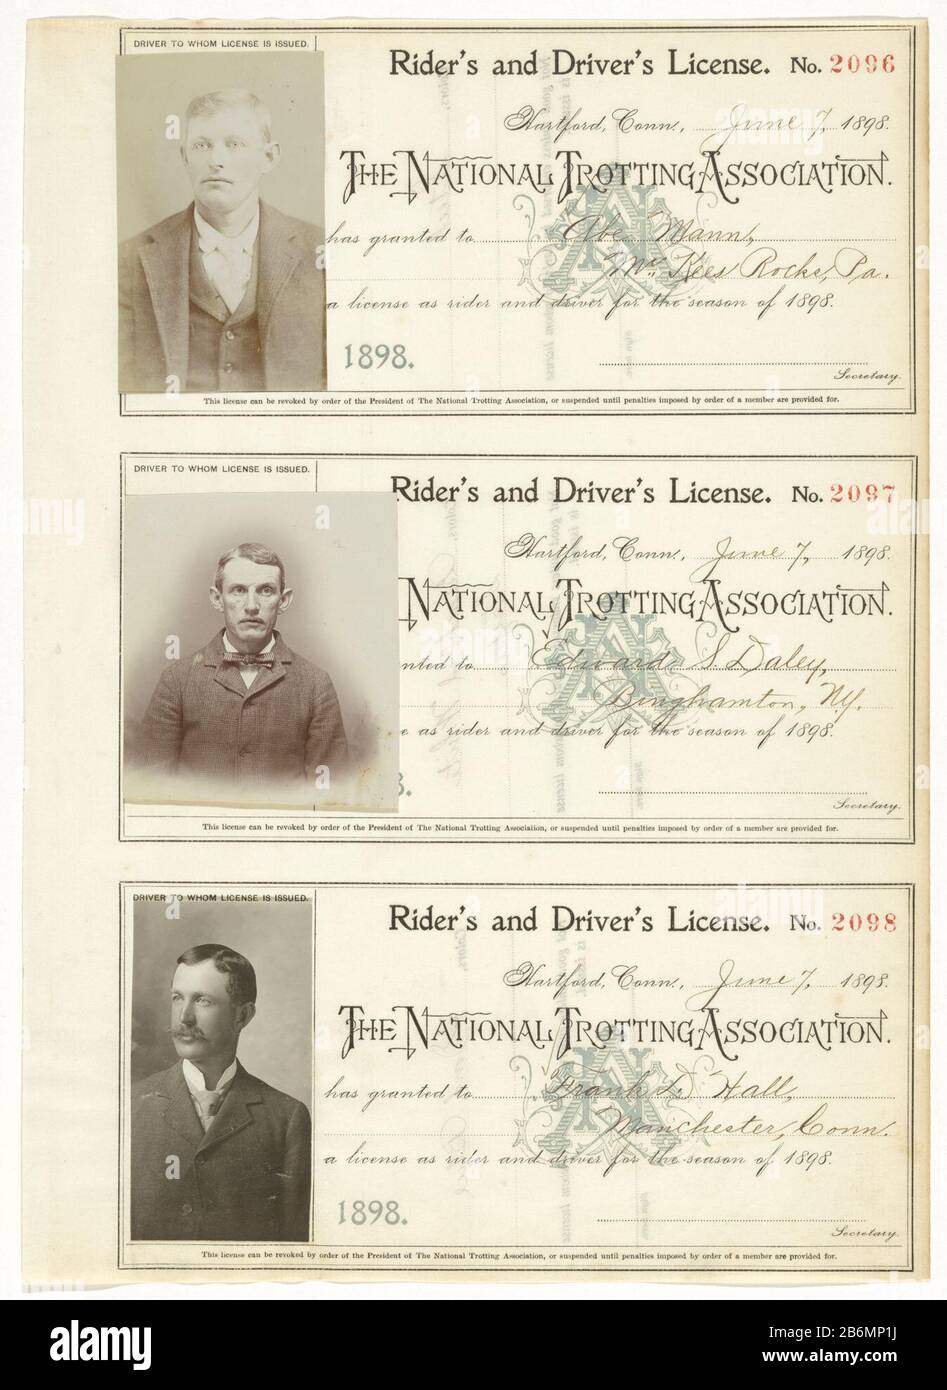 DRIVER TO WHOM LICENSE IS ISSUED.
Rider's and Driver's License. No. 2096
Hartford, Conn., June 7, 1898.
THE NATIONAL TROTTING ASSOCIATION.
has granted to Abe Mann,
McKees Rocks, Pa.
a license as rider and driver for the season of 1898.
1898.
Secretary.
This license can be revoked by order of the President of The National Trotting Association, or suspended until penalties imposed by order of a member are provided for.
DRIVER TO WHOM LICENSE IS ISSUED.
Rider's and Driver's License. No. 2097
Hartford, Conn., June 7, 1898.
NATIONAL TROTTING ASSOCIATION.
nted to Edward S. Daley,
Binghamton, N.Y.
e as rider and driver for the season of 1898.
8.
Secretary.
This license can be revoked by order of the President of The National Trotting Association, or suspended until penalties imposed by order of a member are provided for.
DRIVER TO WHOM LICENSE IS ISSUED.
Rider's and Driver's License. No. 2098
Hartford, Conn., June 7, 1898.
THE NATIONAL TROTTING ASSOCIATION.
has granted to Frank D. Hall,
Manchester, Conn.
a license as rider and driver for the season of 1898.
1898.
Secretary.
This license can be revoked by order of the President of The National Trotting Association, or suspended until penalties imposed by order of a member are provided for.
alamy
Image ID: 2B6MP1J
www.alamy.com